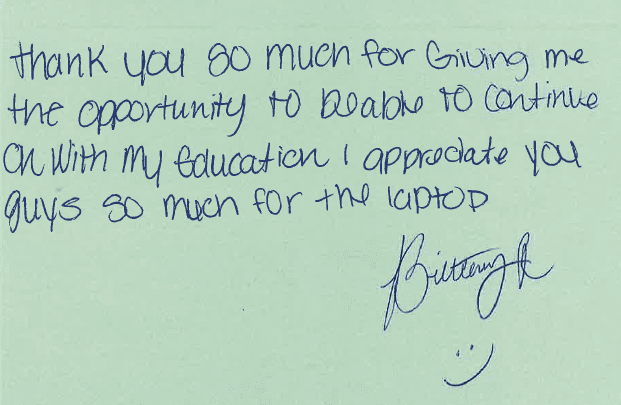 thank you so much for Giving me
the opportunity to Beable to Continue
on With My Education I appreciate you
guys so much for the laptop
Brittany R
:)